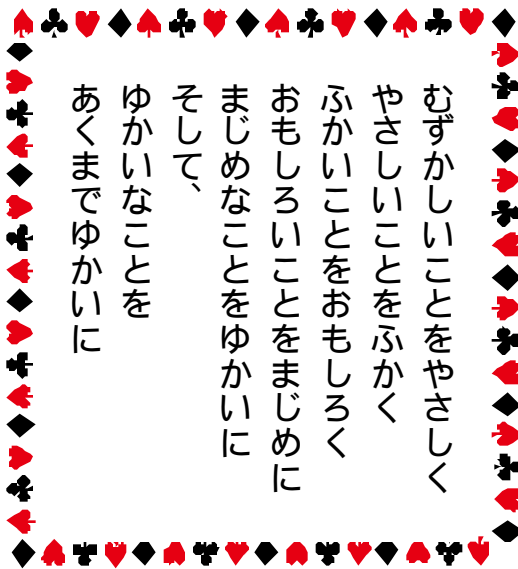 むずかしいことをやさしく
やさしいことをふかく
ふかいことをおもしろく
おもしろいことをまじめに
まじめなことをゆかいに
そして、
ゆかいなことを
あくまでゆかいに